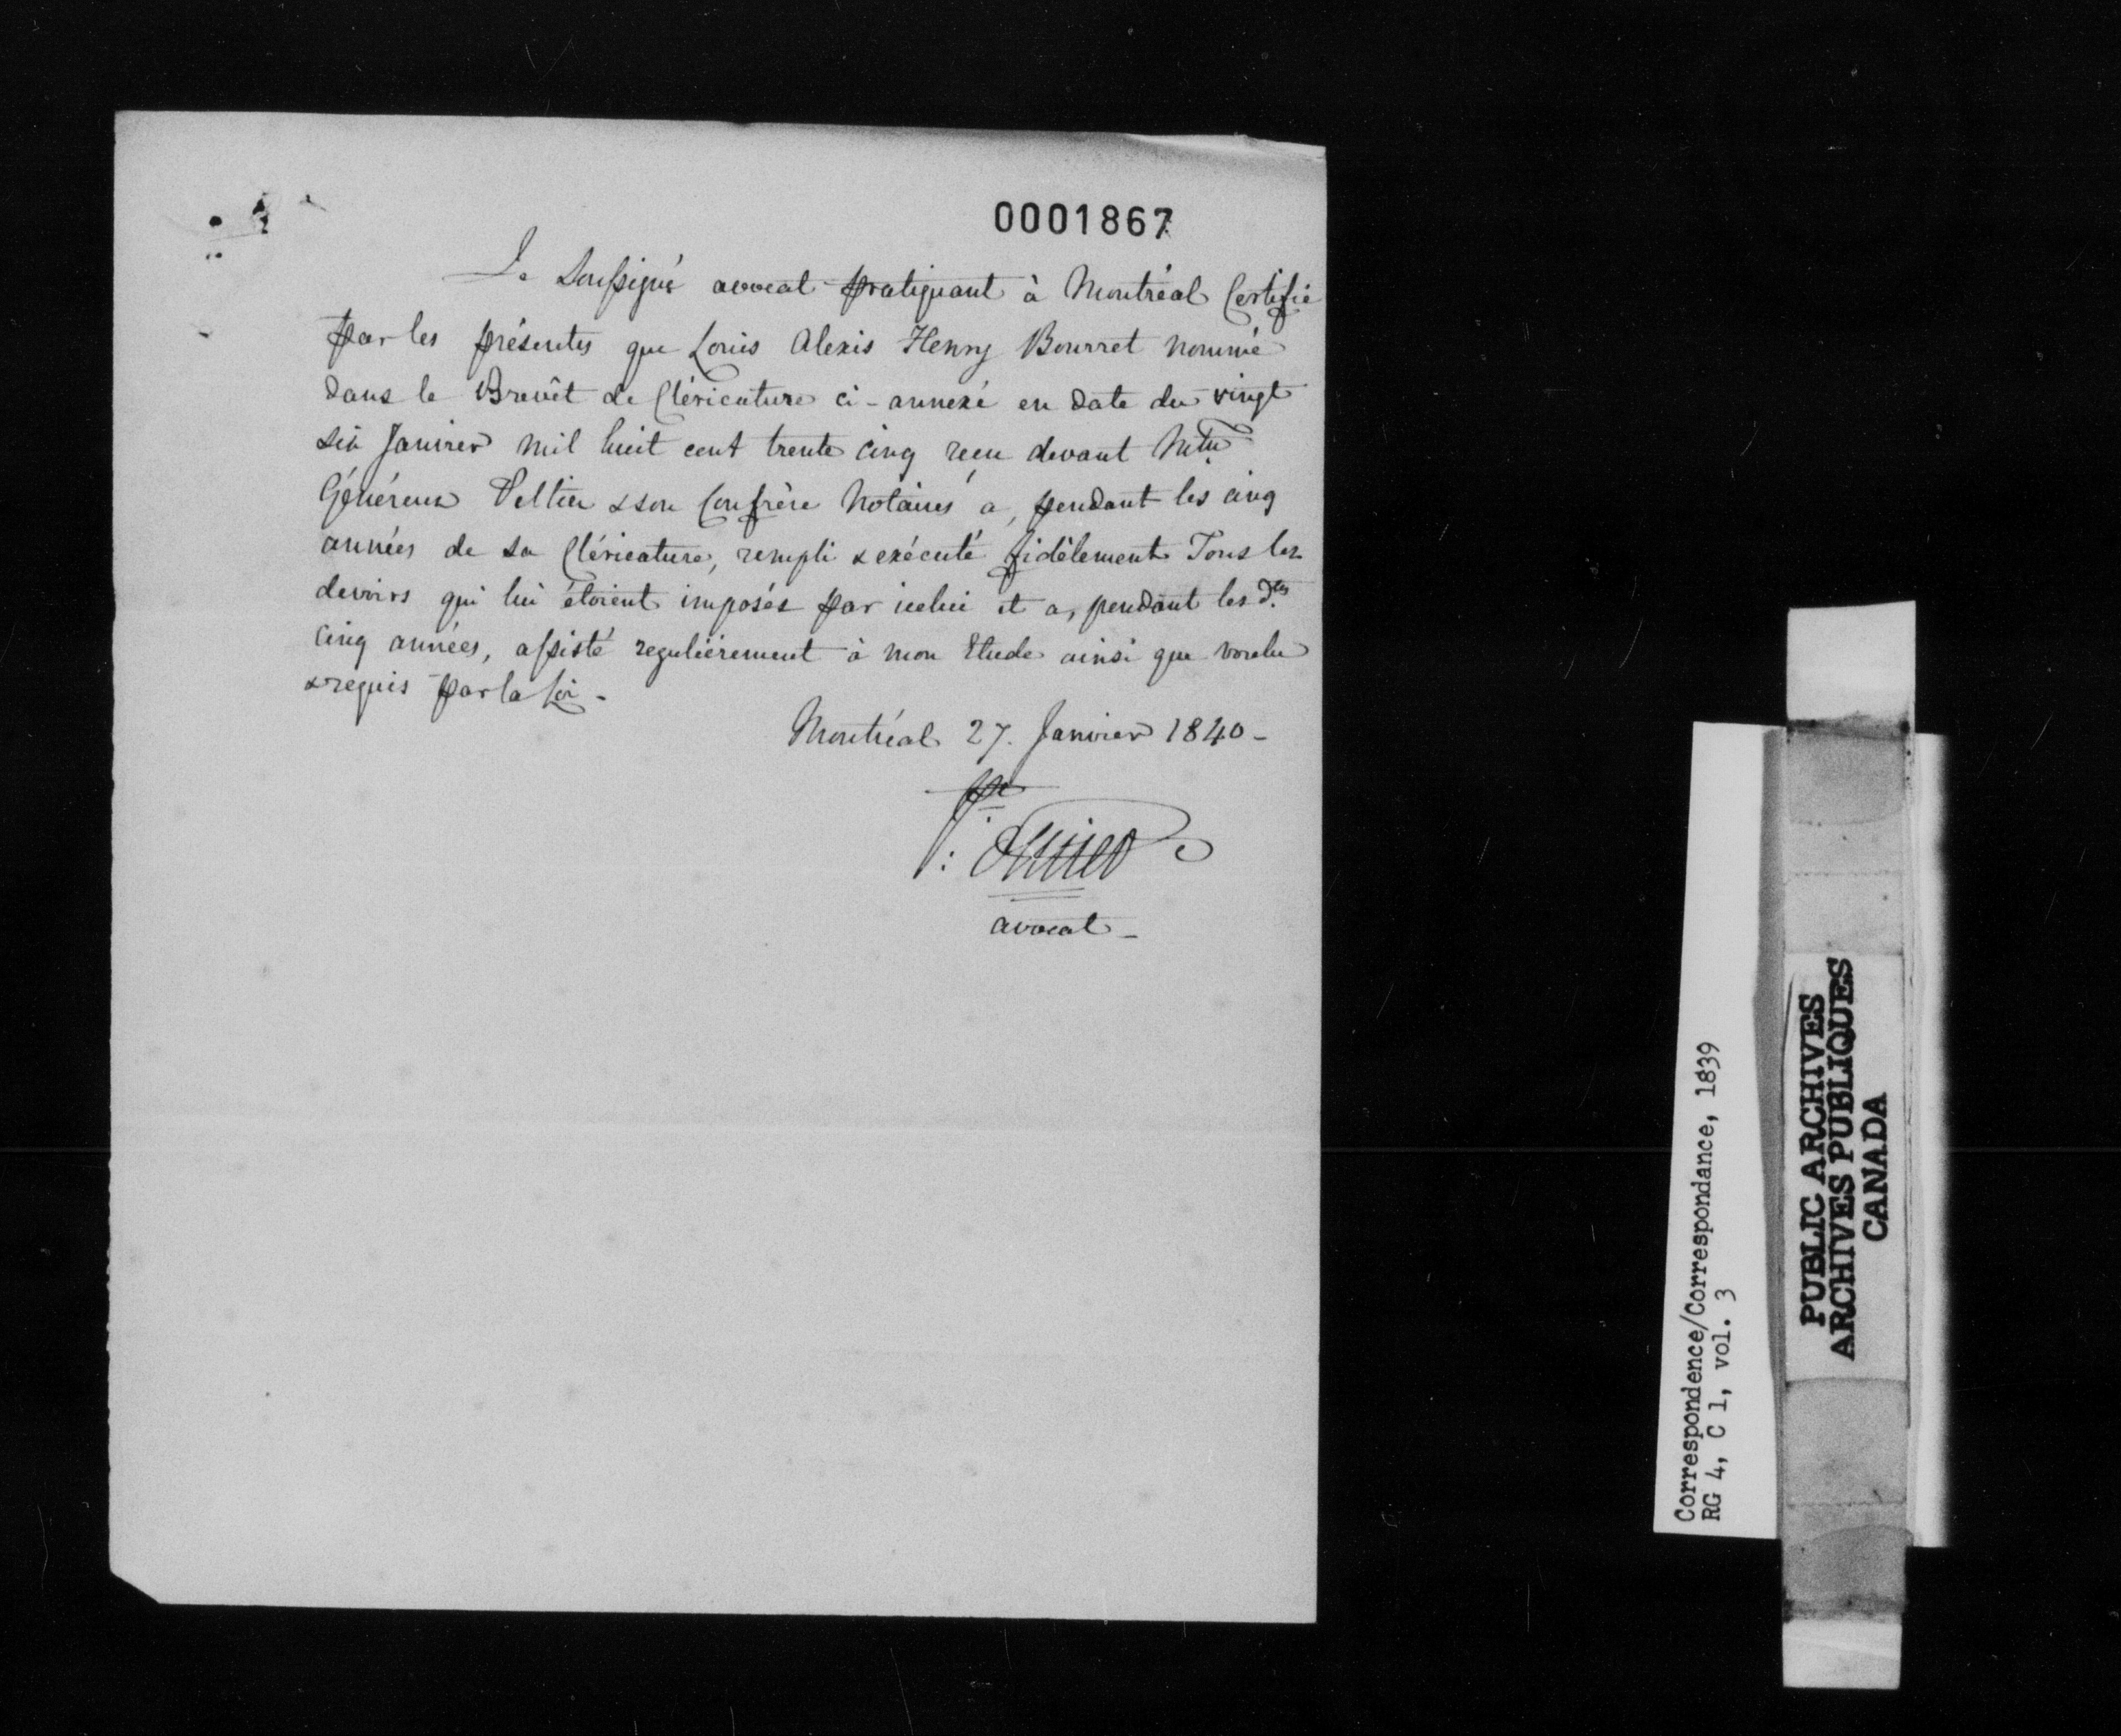 0001867
Le Soussigné avocat pratiquant à Montréal Certifie
par les présentes que Louis Alexis Henry Bourret nommé
dans le Brevêt de Cléricature ci-annexé en date du vingt
six Janvier mil huit cent trente cinq reçu devant Mtre
Généreux Peltier & son Confrère Notaires a, pendant les cinq
années de sa Cléricature, rempli & exécuté fidèlement Tous les
devoirs qui lui étoient imposés par icelui et a, pendant les dtes
cinq années, assisté regulièrement à mon Etude ainsi que voulu
& requis par la Loi -
Montréal 27. Janvier 1840 -
avocat -
Correspondence/Correspondance, 1839
RG 4, C 1, vol. 3
PUBLIC ARCHIVES
ARCHIVES PUBLIQUES
CANADA